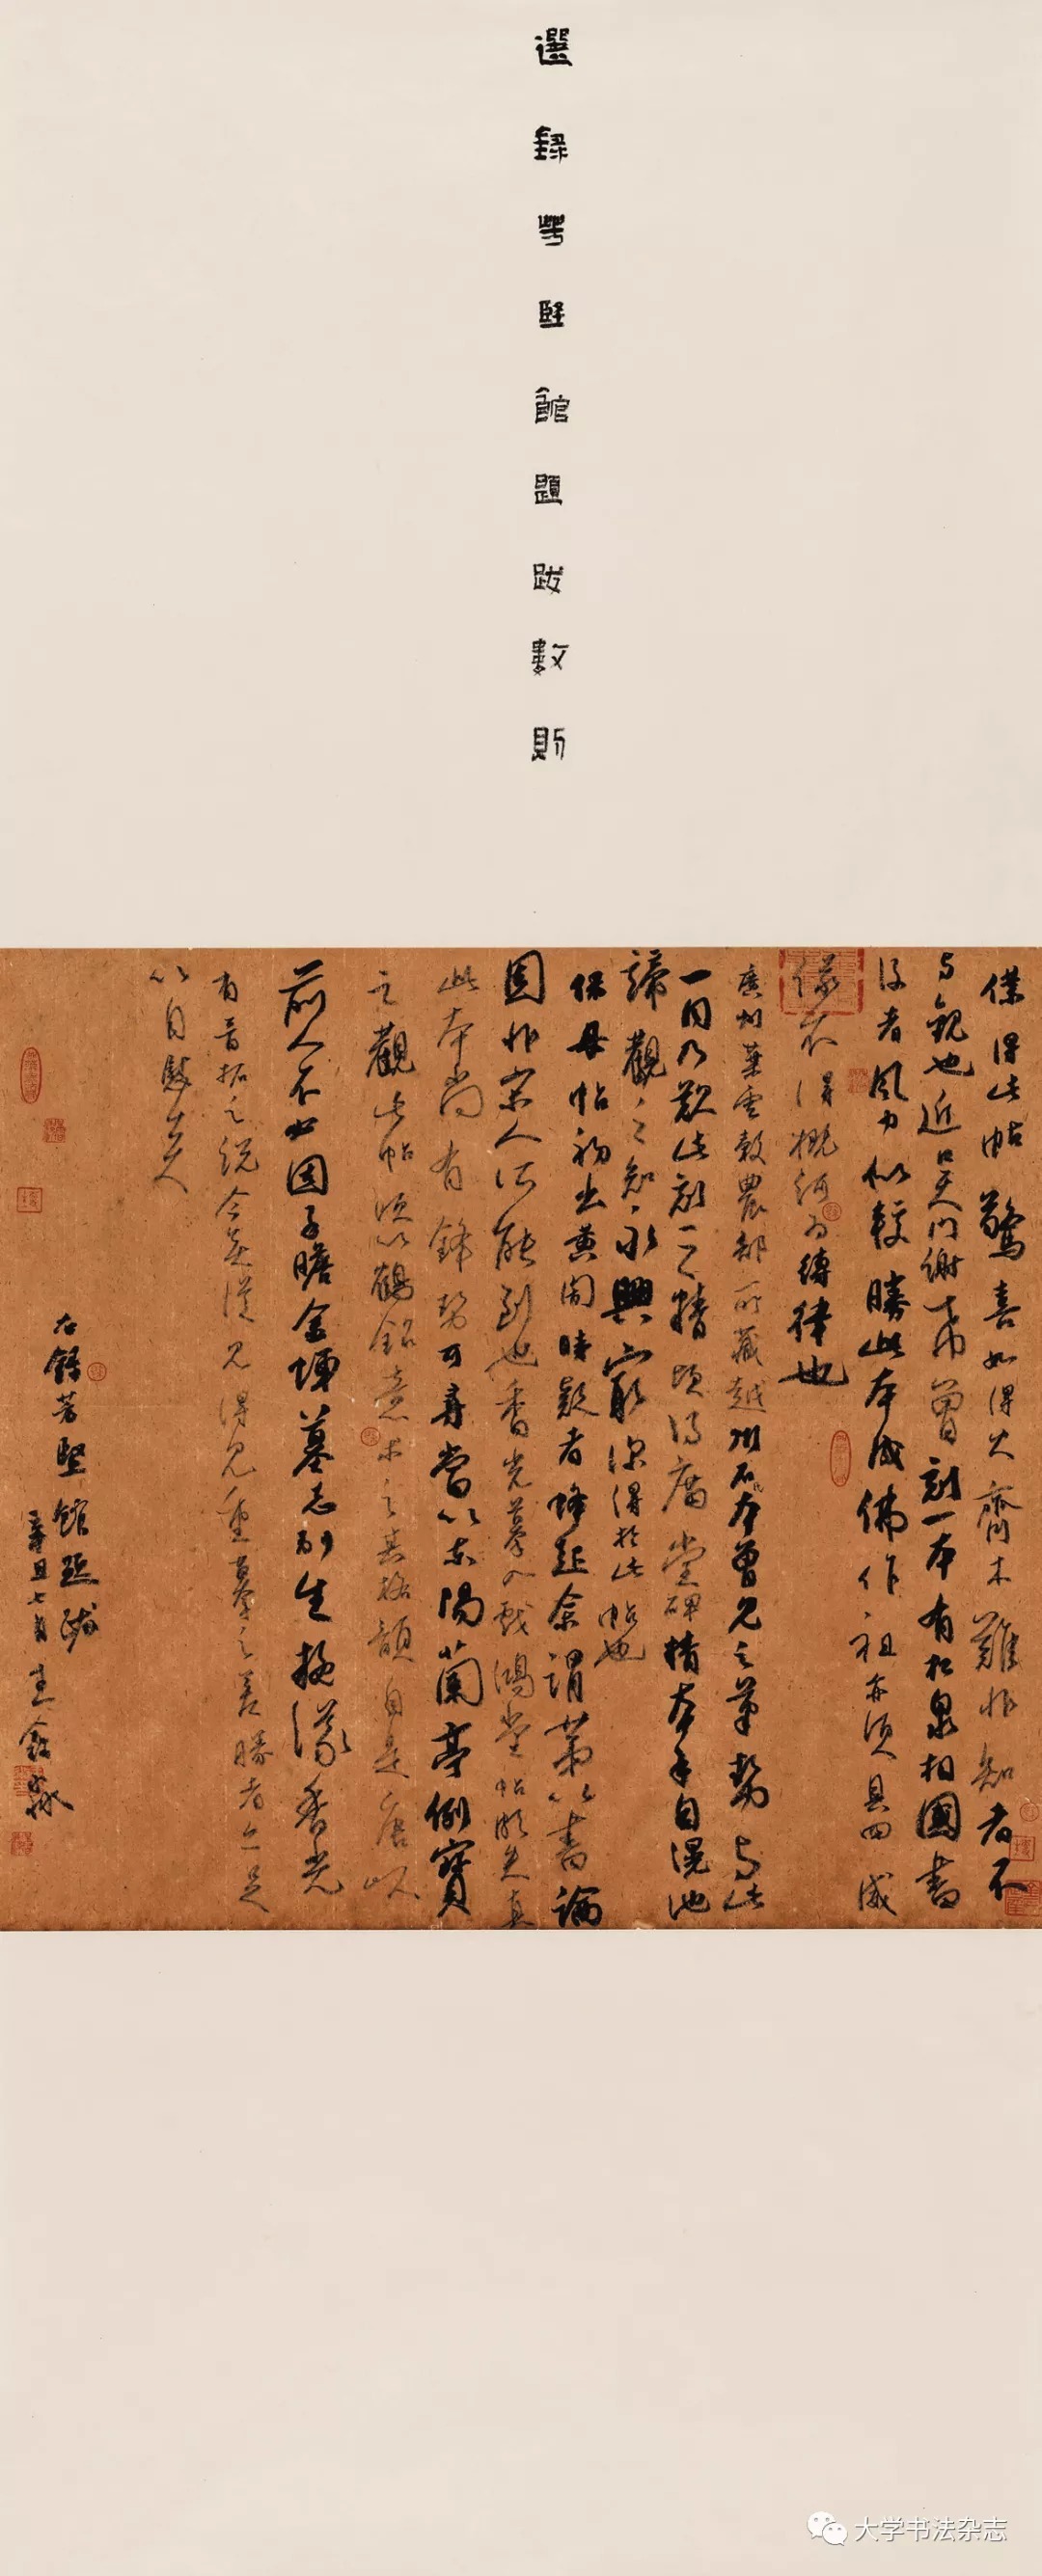 選錄芳堅館題跋數則
僕得此帖驚喜如得火齊木難非知者不
与觀也近吳門謝東墅曾刻一本有松泉相國書
後者風力似較勝此本成佛作祖亦須具四威
儀不得概訶为縛律也
廣州葉雲穀農部所藏越州石本曾見之筆勢与此
一同乃歎此刻之精頃得廟堂碑精本手自滉池
諦觀之知永興實深得於此帖也
保母帖初出黃閍時疑者蜂起余謂苐以書論
固非宋人所能到也香光摹入戲鴻堂帖頗失真
此本尚有鋒勢可尋當以東陽蘭亭例寶
之觀此帖須以鶴銘意求之其格韻自是唐以
前人不必因子瞻金壇墓志別生擬議香光
有晉拓之説今無從見得見重摹之善勝者亦足
以自慰矣
右錄芳堅館題跋
辛丑七月
大学书法杂志